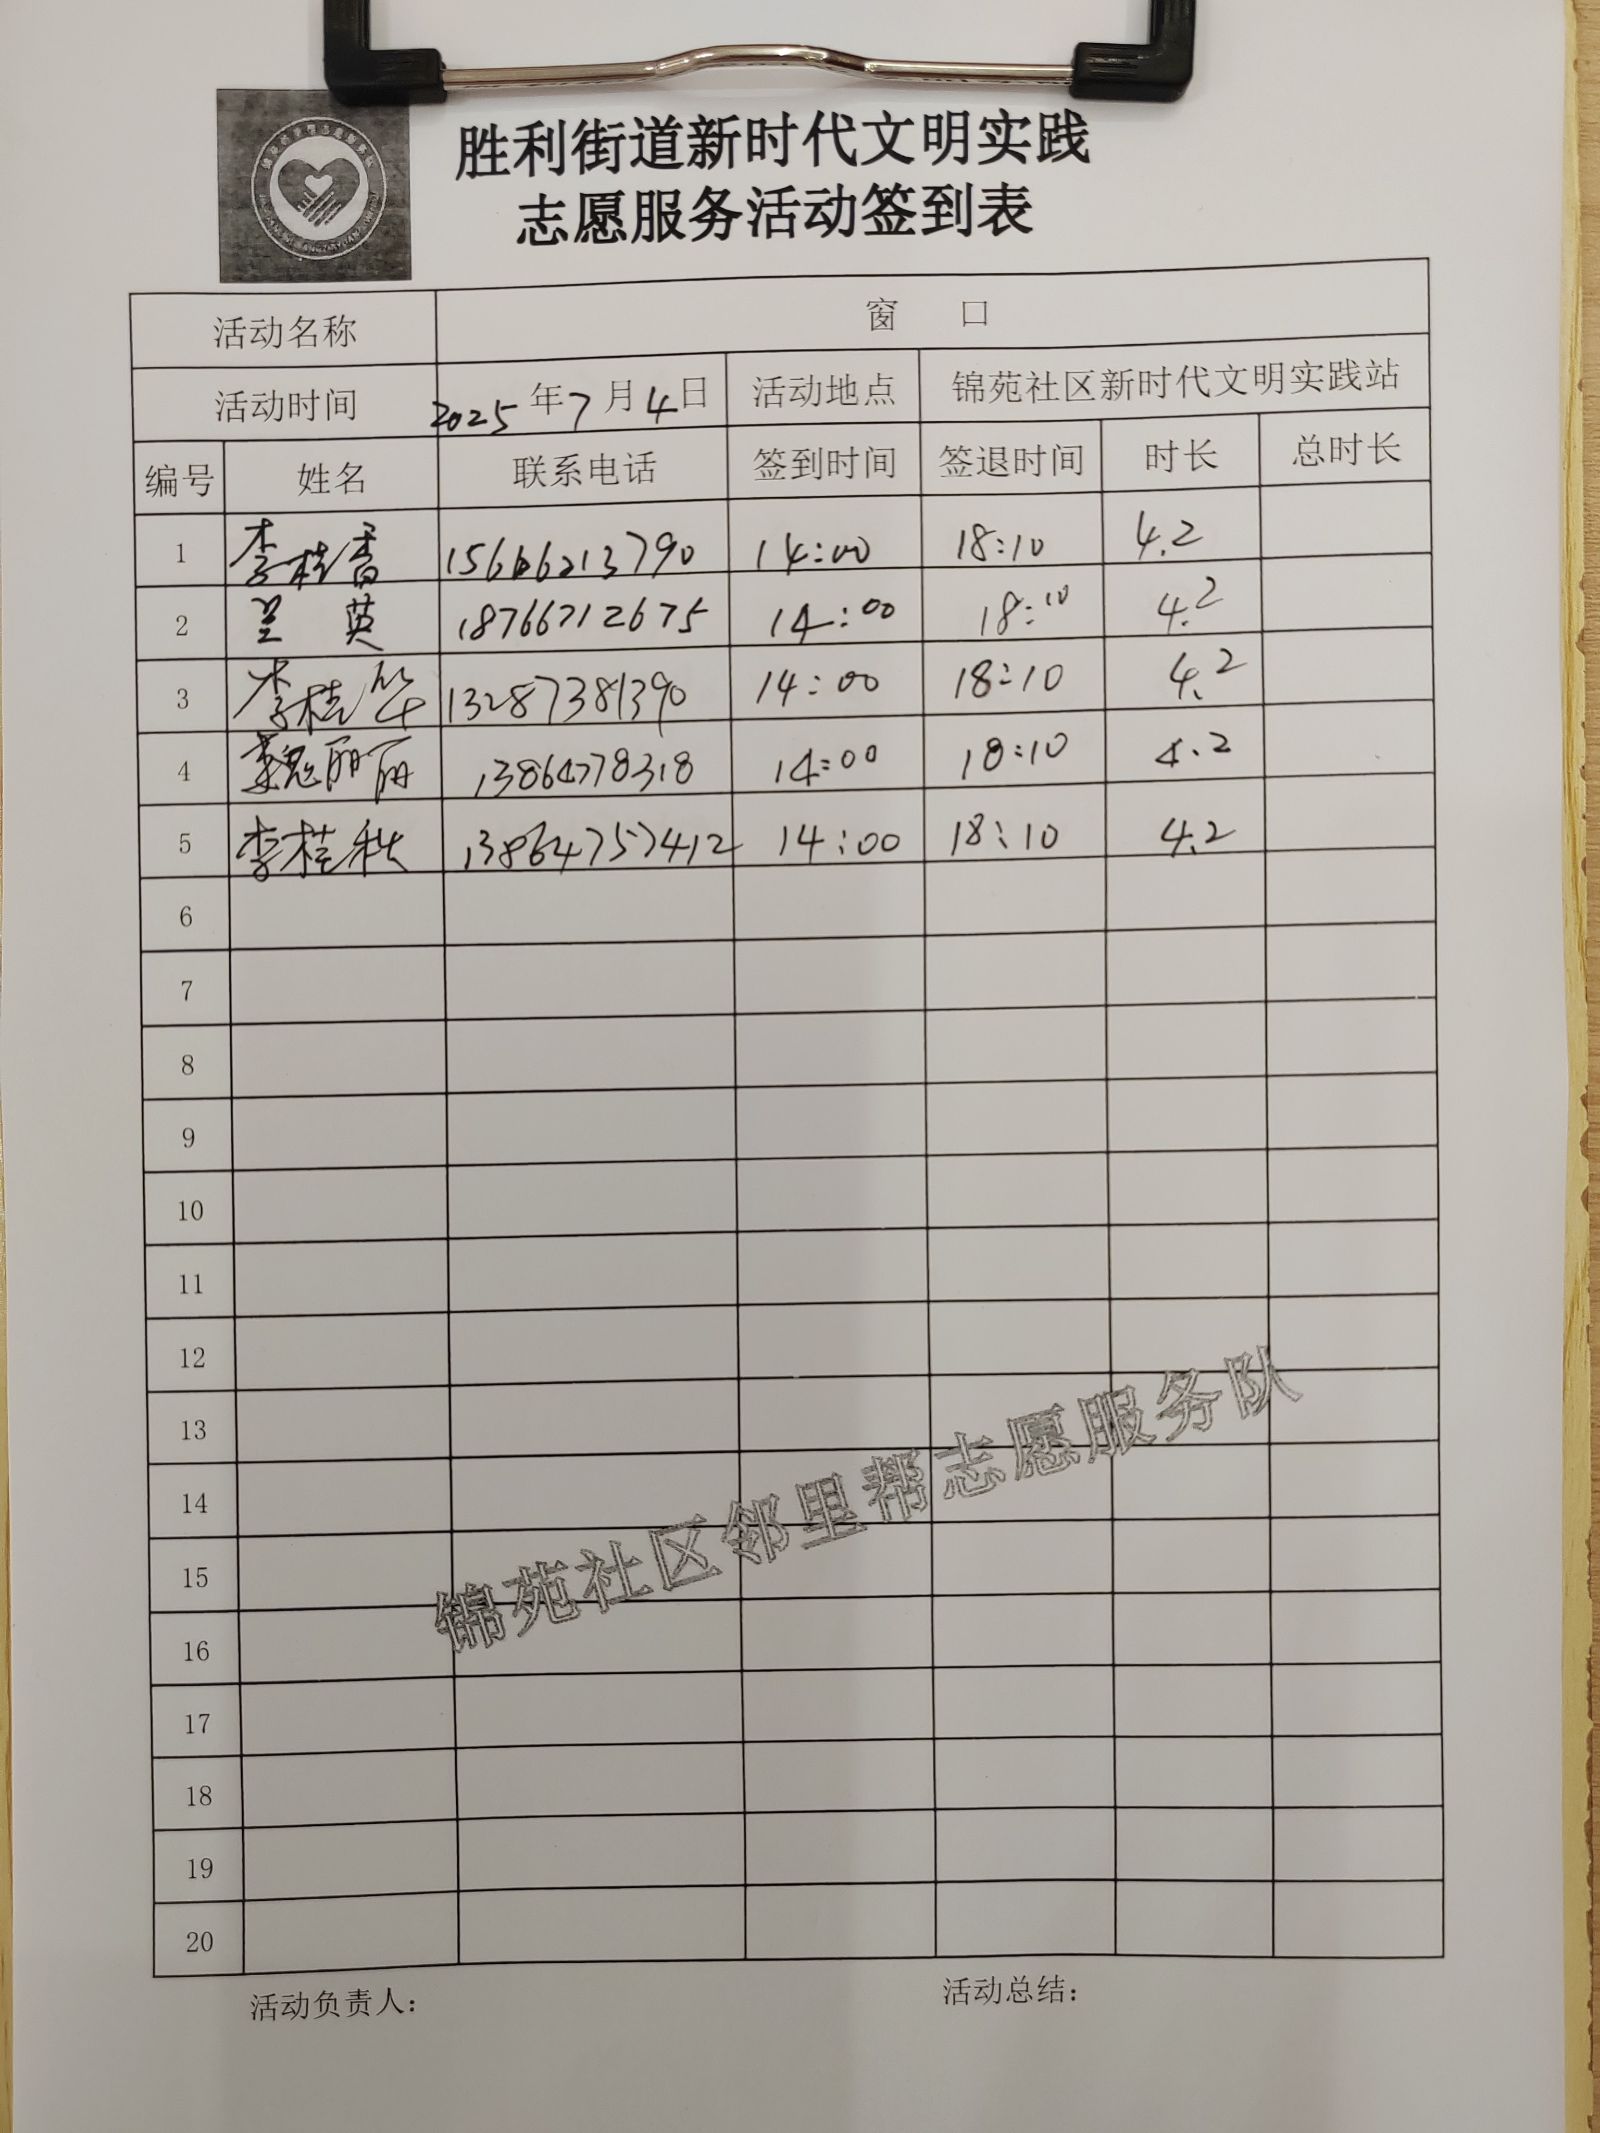 胜利街道新时代文明实践
志愿服务活动签到表
活动名称 窗 口
活动时间 2025年7月4日 活动地点 锦苑社区新时代文明实践站
编号 姓名 联系电话 签到时间 签退时间 时长 总时长
1 李桂香 15666213790 14:00 18:10 4.2
2 兰英 18766712675 14:00 18:10 4.2
3 李桂华 13287381390 14:00 18:10 4.2
4 魏丽丽 13864778318 14:00 18:10 4.2
5 李桂秋 13864757412 14:00 18:10 4.2
6
7
8
9
10
11
12
13
14
15
16
17
18
19
20
锦苑社区邻里帮志愿服务队
活动负责人: 活动总结: